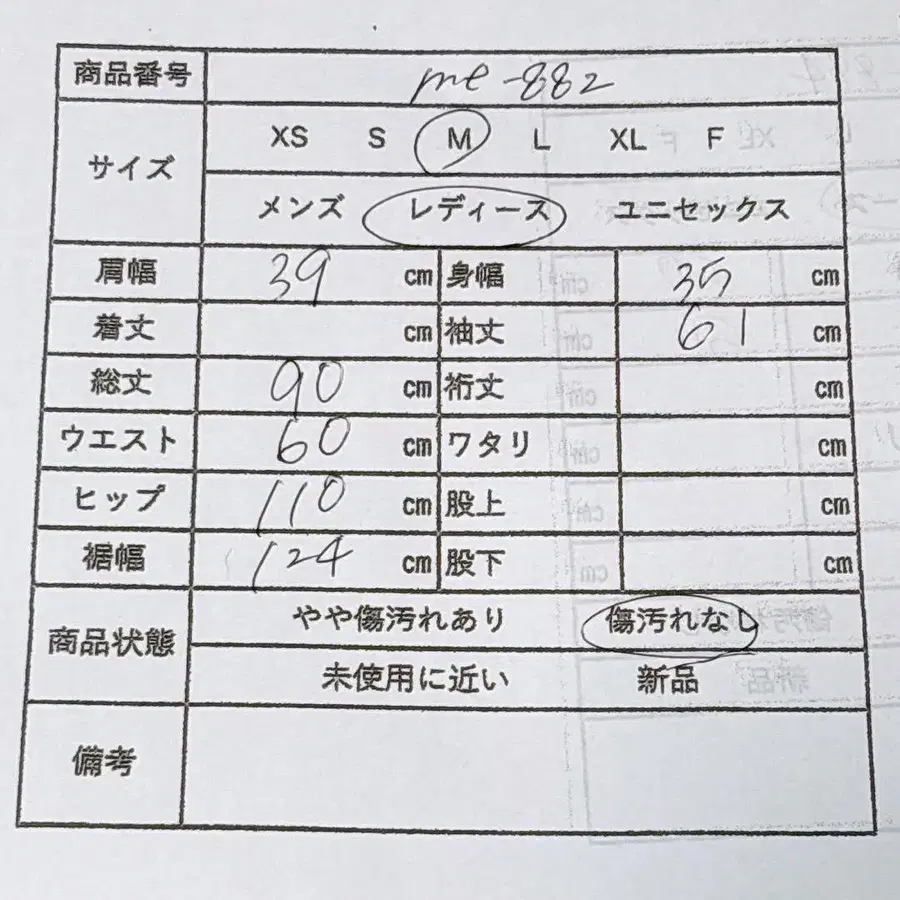 商品番号 me-882
サイズ XS S M L XL F
メンズ レディース ユニセックス
肩幅 39 cm 身幅 35 cm
着丈 cm 袖丈 61 cm
総丈 90 cm 裄丈 cm
ウエスト 60 cm ワタリ cm
ヒップ 110 cm 股上 cm
裾幅 124 cm 股下 cm
商品状態 やや傷汚れあり 傷汚れなし
未使用に近い 新品
備考